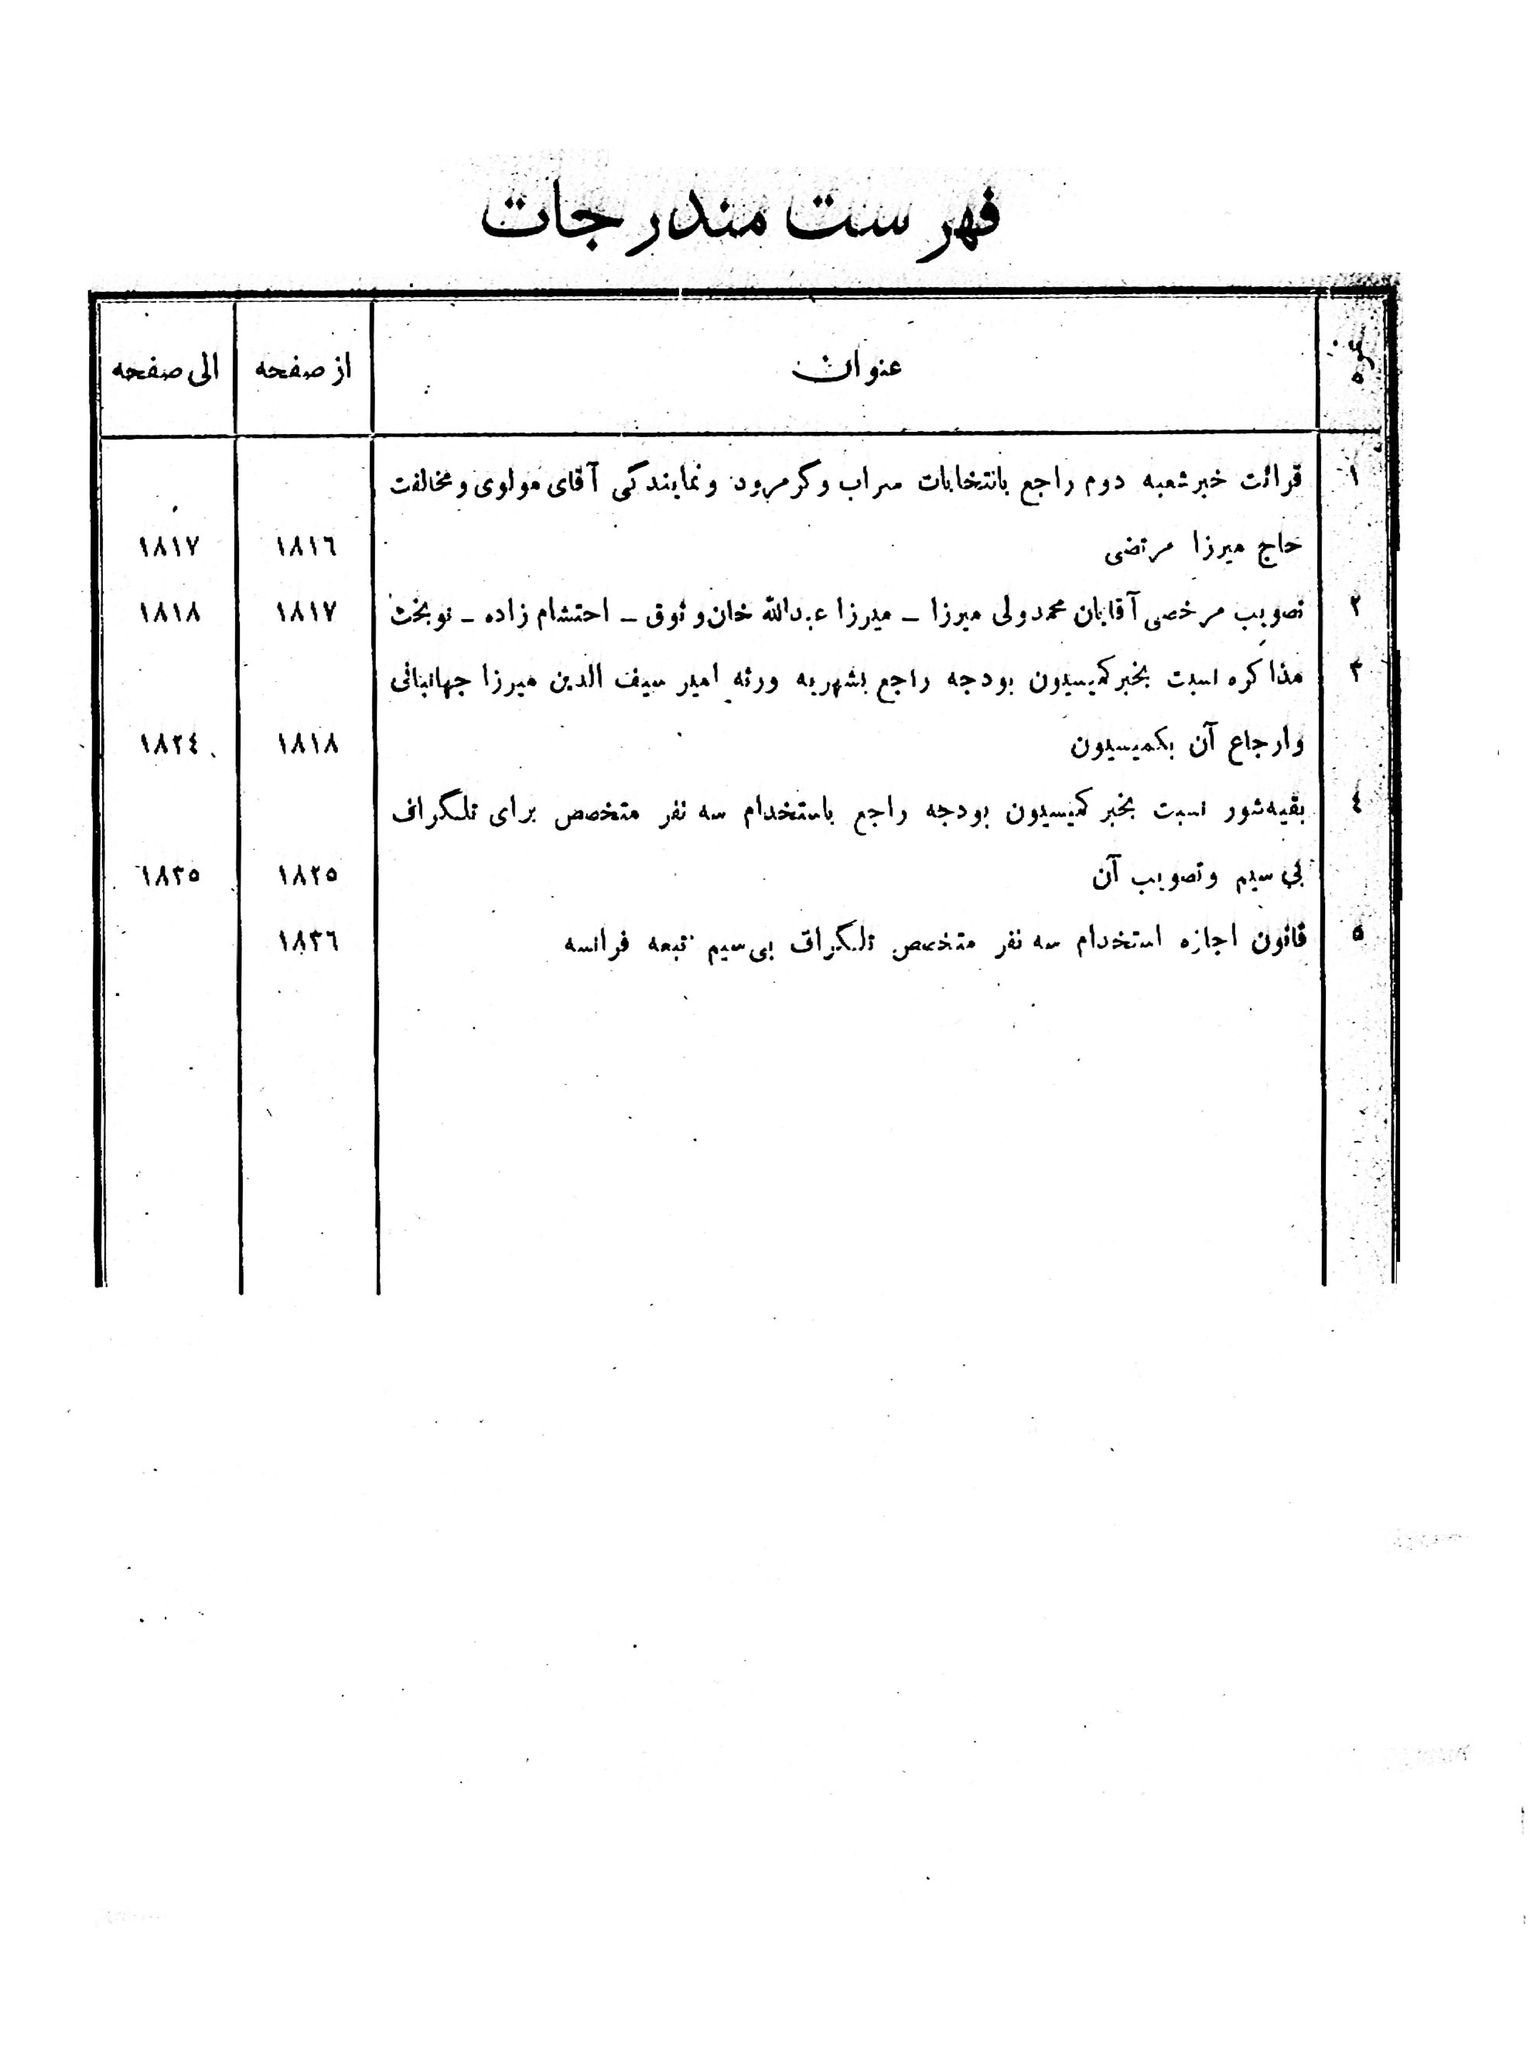 فهرست مندرجات
نمره عنوان از صفحه الی صفحه
١ قرائت خبر شعبه دوم راجع بانتخابات سراب و گرمرود و نمایندگی آقای مولوی و مخالفت
حاج میرزا مرتضی ١٨١٦ ١٨١٧
٢ تصویب مرخصی آقایان محمد ولی میرزا ـ میرزا عبدالله خان وثوق ـ احتشام زاده ـ نوبخت ١٨١٧ ١٨١٨
٣ مذاکره نسبت بخبر کمیسیون بودجه راجع بشهریه ورثه امیر سیف الدین میرزا جهانبانی
وارجاع آن بکمیسیون ١٨١٨ ١٨٢٤
٤ بقیه شور نسبت بخبر کمیسیون بودجه راجع باستخدام سه نفر متخصص برای تلگراف
بی سیم و تصویب آن ١٨٢٥ ١٨٣٥
٥ قانون اجازه استخدام سه نفر متخصص تلگراف بی سیم تبعه فرانسه ١٨٣٦